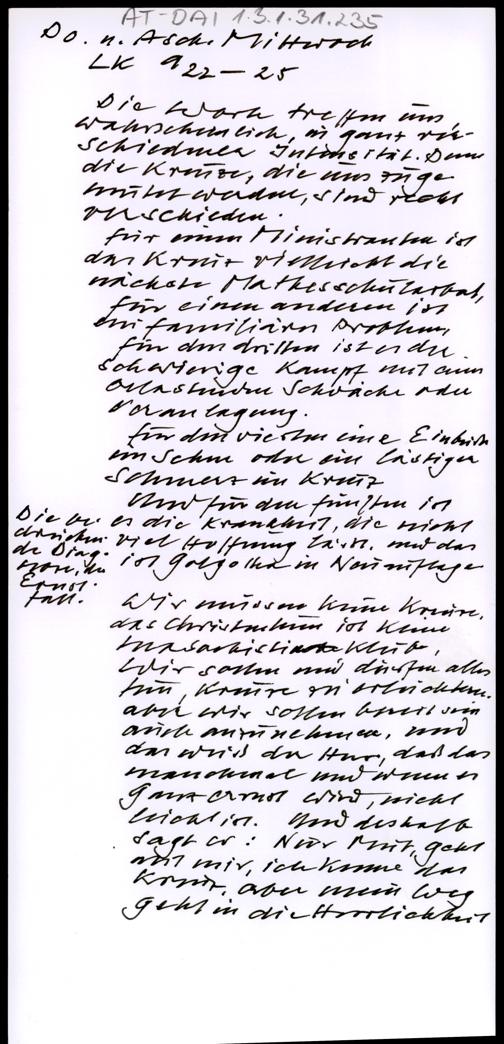 AT-DAI 1.3.1.31.235
Do. n. Asch. Mittwoch
LK 9 22-25
Die Worte treffen uns
wahrscheinlich, in ganz ver-
schiedener Intensität. Denn
die Kreuze, die uns zuge
mutet werden, sind recht
verschieden.
Für einen Ministranten ist
das Kreuz vielleicht die
nächste Mathesschularbeit,
für einen anderen ist
ein familiäres Problem,
für den dritten ist es der
schwierige Kampf mit einer
belastenden Schwäche oder
Veranlagung.
Für den vierten eine Einbuße
im Sehen oder ein lästiger
Schmerz im Kreuz
Und für den fünften ist
es die Krankheit, die nicht
viel Hoffnung lässt. und das
ist Golgotha in Neuauflage
Die be
drücken
de Diag
nose, der
Ernst-
fall.
Wir müssen keine Kreuze.
das Christentum ist keine
masochistische Klub.
Wir sollen und dürfen alles
tun, Kreuze zu erleichtern.
aber wir sollen bereit sein
auch anzunehmen, und
das weiß der Herr, daß das
manchmal und wenn es
ganz ernst wird, nicht
leicht ist. Und deshalb
sagt er: Nur Mut, geht
mit mir, ich kenne das
Kreuz, aber mein Weg
geht in die Herrlichkeit